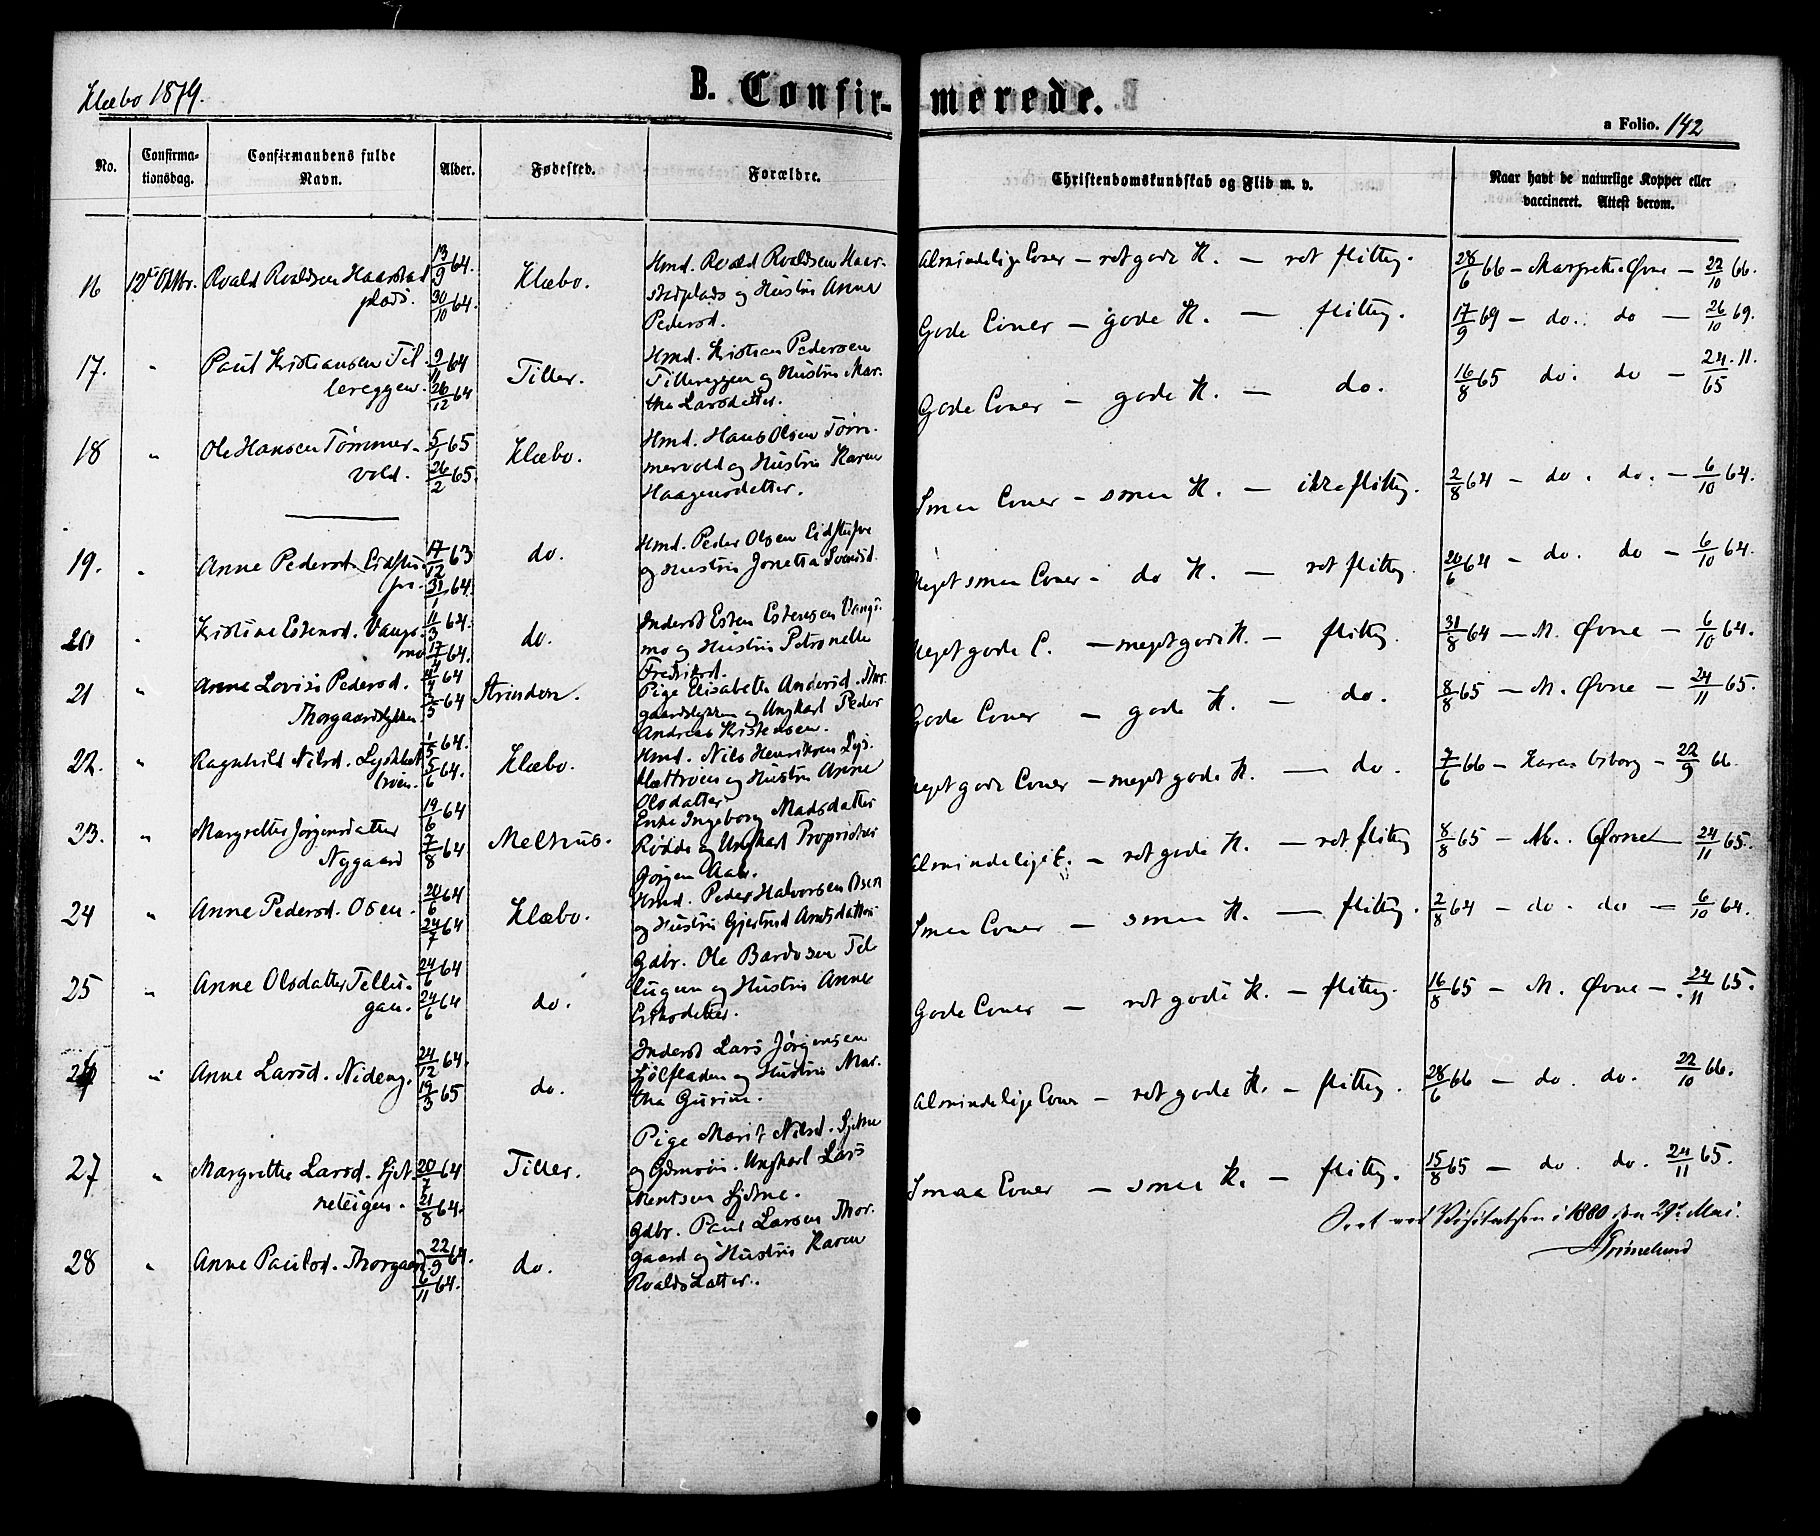 Klæbo 1879.
B. Confir-merede.
a Folio. 142
No.
Confirma-
tionsdag.
Confirmandens fulde
Navn.
Alder.
Fødested.
Forældre.
Christendomskundskab og Flid m. v.
Naar havt de naturlige Kopper eller
vaccineret. Attest derom.
16 12te Oktbr. Roald Roaldsen Haarstad
plads. 13/9 64. 30/10 64. Klæbo.
Hmd. Roald Roaldsen Haar-
stadplads og Hustru Anne
Pedersd.
Almindelige Evner – ret gode K. – ret flittig. 28/6 66 – Margrethe Øvne – 22/10 66.
17. " Paul Kristiansen Til-
lereggen. 9/11 64 26/12 64 Tiller.
Hmd. Kristian Pedersen
Tillereggen og Hustru Mar-
tha Larsdatter.
Gode Evner – gode K. – flittig. 17/9 69 – do. do – 26/10 69.
18 " Ole Hansen Tømmer-
vold. 5/1 65 26/2 65. Klæbo.
Hmd. Hans Olsen Tøm-
mervold og Hustru Karen
Haagensdatter.
Gode Evner – gode K. – do. 16/8 65 do. do – 24.11./65
19. " Anne Pedersd. Eidstu-
17/12 63 31/1 64. do.
Hmd. Peder Olsen Eidstu
og Hustru Jonetta
Smaa Evner – smaa K. – ikke flittig. 2/8 64 – do. do. – 6/10 64.
20 " Kristine Estensd. Vangs-
mo 11/3 64. 17/4 64. do.
Inderst Esten Estensen Vangs-
mo og Hustru Petronelle
Fredriksd.
Meget smaa Evner – do K. – ret flittig. 20/6 64 – do. do – 6/10 64.
21 " Anne Lovise Pedersd.
Thorgaardslykken 64 64 Strinden.
Pige Elisabeth Andersd. Thor-
gaardslykken og Ungkarl Peder
Andreas Kristensen.
Meget gode E. – meget gode K. – flittig. 31/8 64 – M. Øvne – 6/10 64.
22. " Ragnhild Nilsd. Lysklet-
trøen. 1/5 64. 5/6 64. Klæbo.
Hmd. Nils Henriksen Lys-
klettrøen og Hustru Anne
Olsdatter
Gode Evner – gode K. – do. 8/8 65 – M. Øvne – 24/11 65.
23. " Margrethe Jørgensdatter
Nygaard 19/6 64 7/8 64 Melhus.
Enke Ingeborg Madsdatter
Rødde og Ungkarl Proprietær
Jørgen Aae.
Meget gode Evner – meget gode K. – do. 7/6 66 – Karen Viborg – 22/9 66.
24 " Anne Pedersd. Osen. 20/6 64 24/7 64 Klæbo.
Hmd. Peder Halvorsen Osen
og Hustru Gjertrud Arntsdatter
Almindelige E. – ret gode K. – ret flittig 8/8 65 – M. Øvne – 24/11 65.
25 " Anne Olsdatter Tellu-
gan. 24/6 64 24/6 64 do.
Gdbr. Ole Bardosen Tel-
lugan og Hustru Anne
Smaa Evner – smaa K. – flittig. 2/8 64 – do. do – 6/10 64.
26 " Anne Larsd. Nideng. 24/12 64. 19/3 65 do.
Inderst Lars Jørgensen
Sjølfladen og Hustru Mar-
tha
Gode Evner – ret gode K. – flittig. 16/8 65 – M. Øvne – 24/11 65.
27 " Margrethe Larsd. Sjet-
neteigen. 20/7 64 21/8 64. Tiller.
Pige Marit Nilsd. Sjetne
og Ungkarl Lars
Bentsen Sjetne.
Almindelige Evner – ret gode K. – flittig. 28/6 66 – do. do. 22/10 66.
28 " Anne Paulsd. Thorgaard 22/9 64. 6/11 64. do.
Gdbr. Paul Larsen Thor-
gaard og Hustru Karen
Roaldsdatter.
Smaa Evner – smaa K. – flittig. 15/8 65 – do. do. 24/11 65.
Seet ved Visitatsen i 1880 den 29de Mai.
A Grimelund